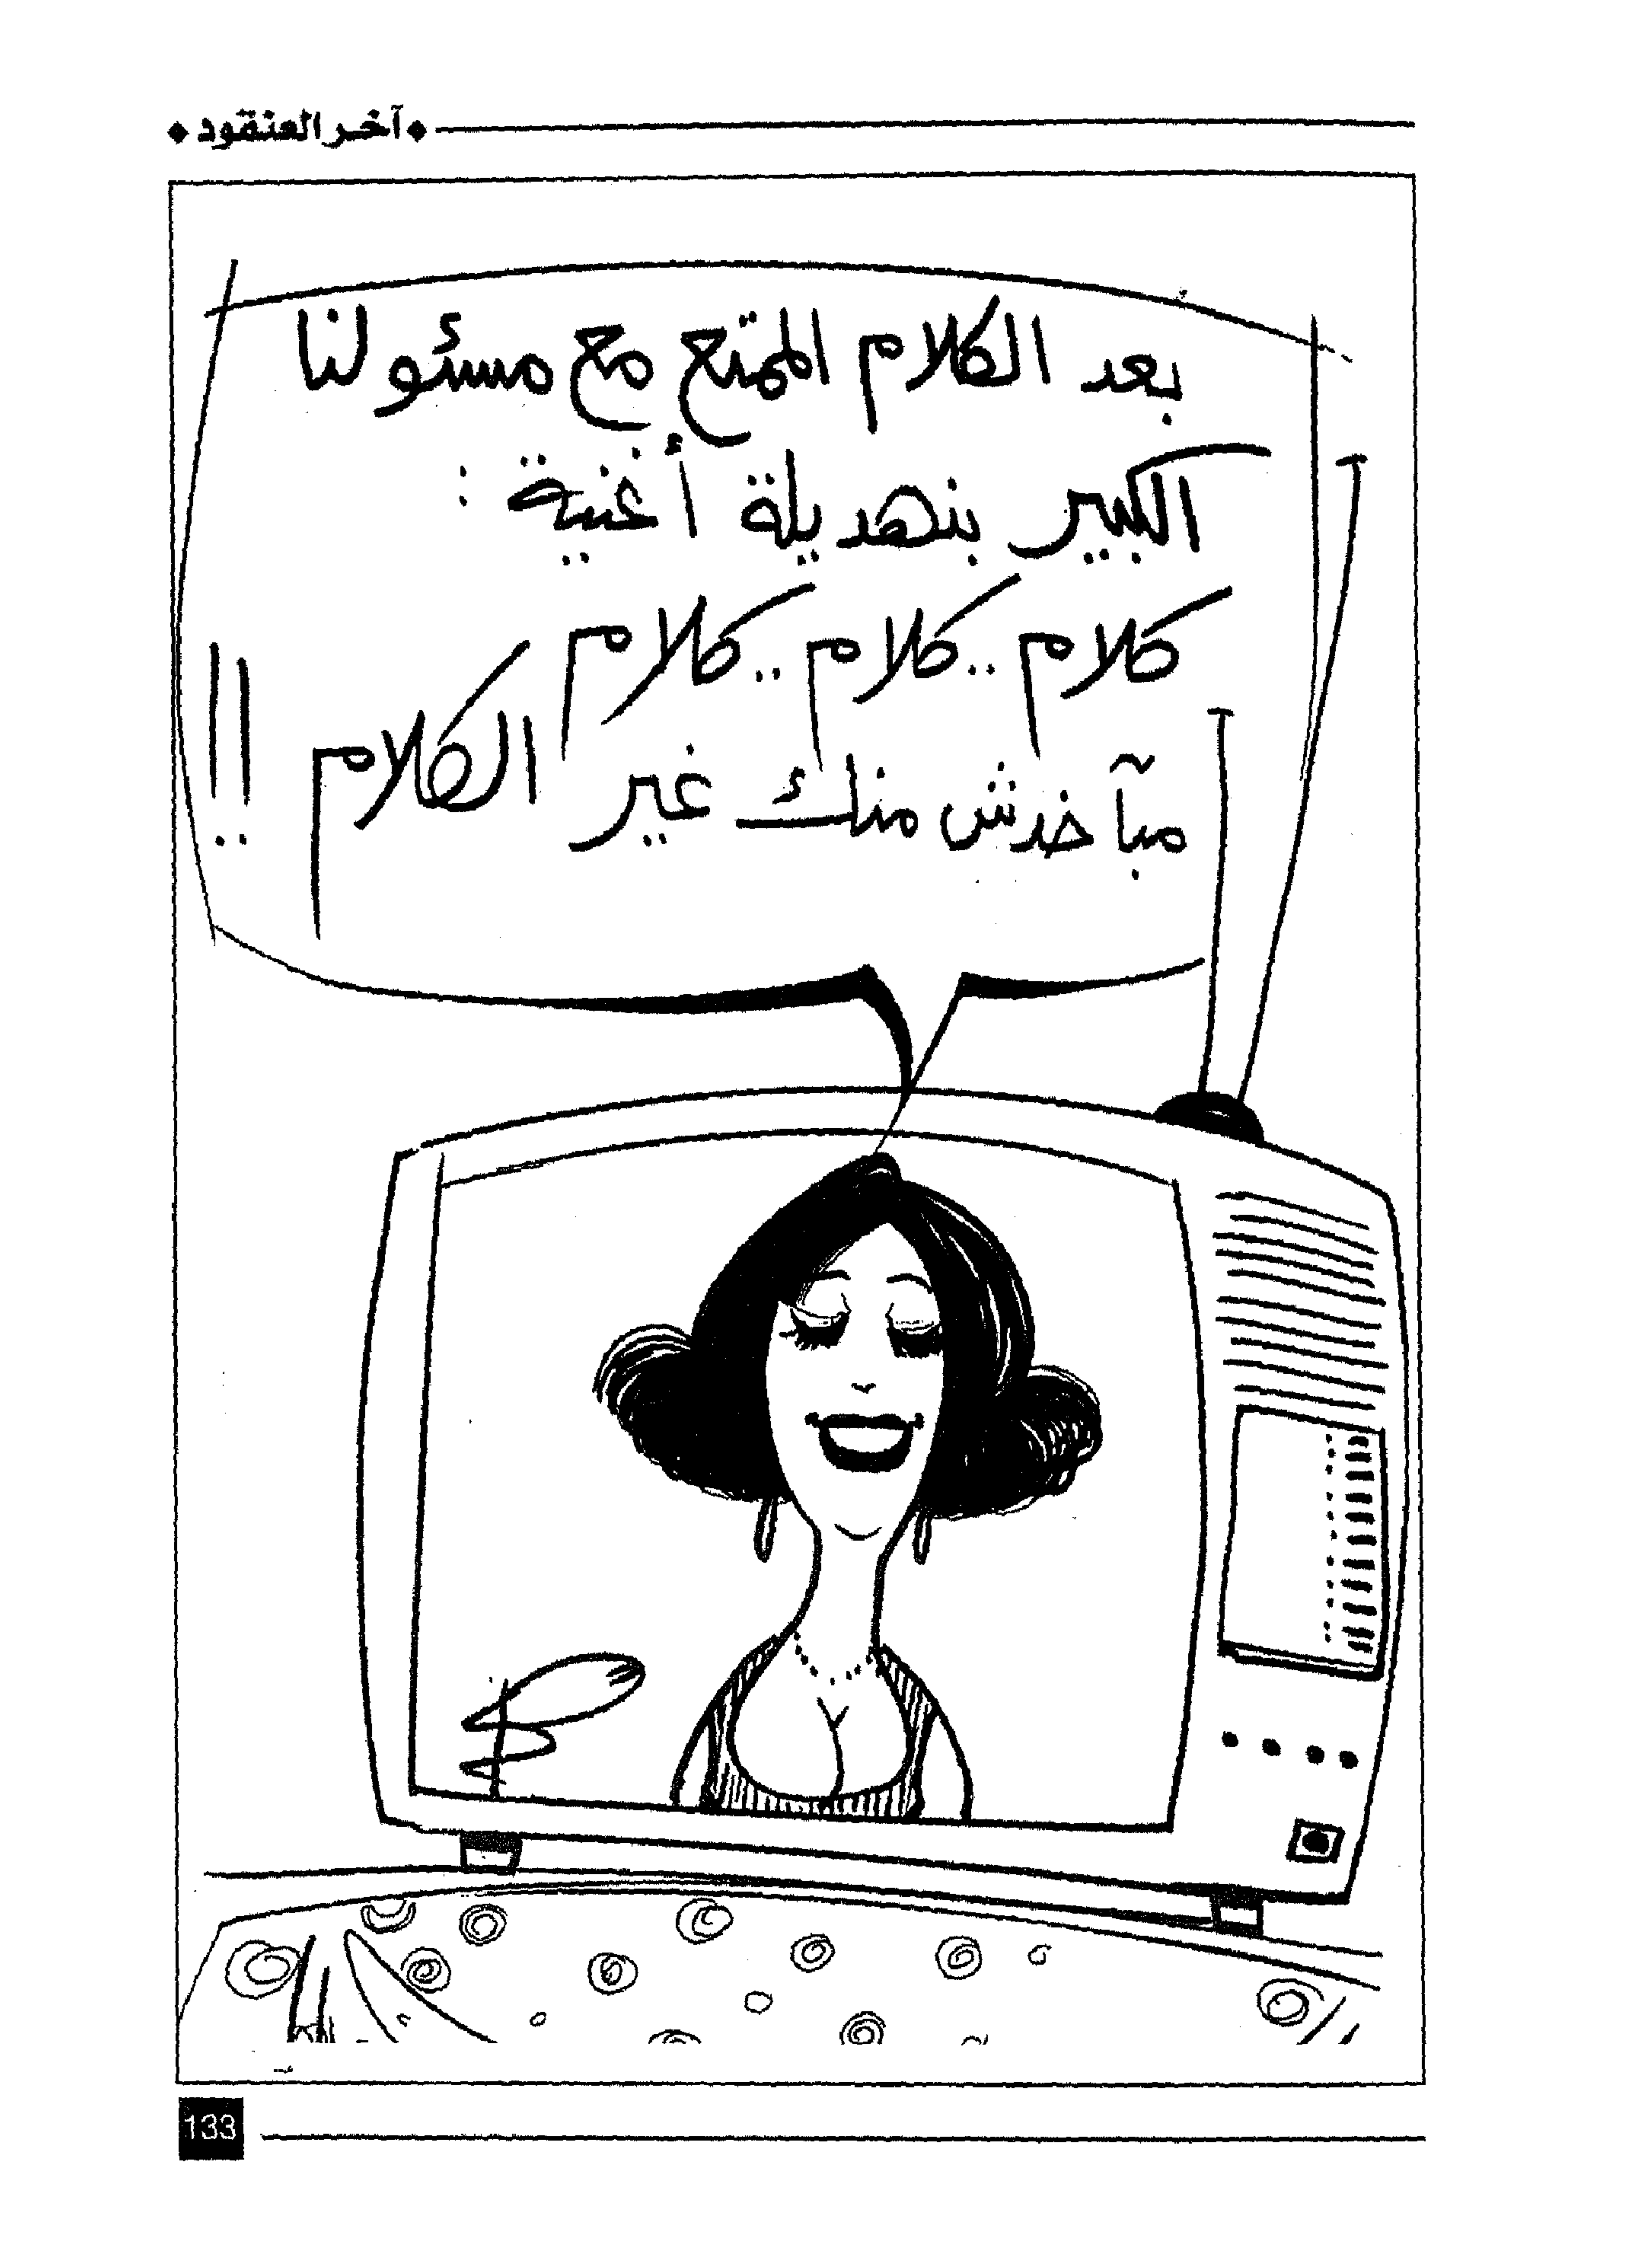 ♦ آخر العنقود ♦
بعد الكلام الممتع مع مسئولنا
الكبير بنهديلة أغنية :
كلام .. كلام .. كلام
مبآخدش منك غير الكلام !!
133